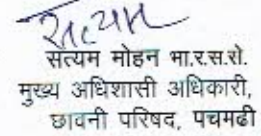 सत्यम
सत्यम मोहन भा.र.स.से.
मुख्य अधिशासी अधिकारी,
छावनी परिषद, पचमढी